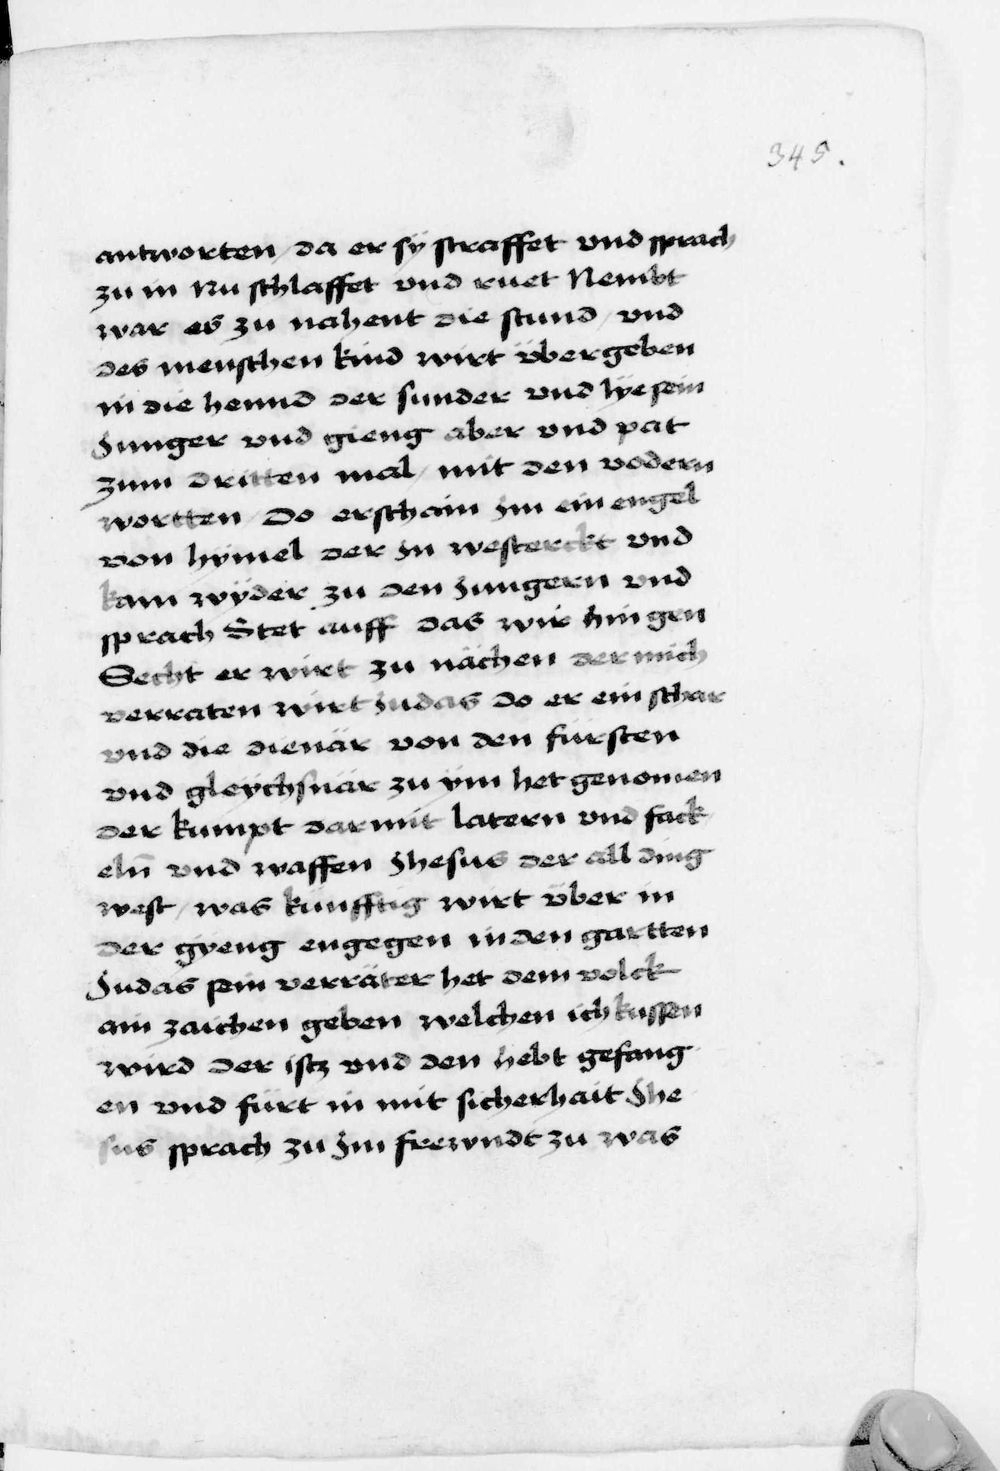 345.
antworten / da er sÿ straffet vnd sprach
zu in Nu schlaffet vnd ruet Nembt
war es zu nahent die stund / vnd
des menschen kind wirt übergeben
in die hennd der sunder vnd lÿe sein
Junger vnd gieng aber vnd pat
zum dritten mal / mit den vodern
wortten / Do erschain Jm ein engel
von hÿmel der Jn westerckt vnd
kam wÿder zu den Jungern vnd
sprach Stet auff das wir hin gen
Secht er wirt zu nächen der mich
verraten wirt Judas do er ein schar
vnd die dienär von den fürsten
vnd gleÿchsnär zu ÿm het genomen
der kumpt dar mit latern vnd fack
eln̄ vnd waffen Jhesus der all ding
west / was künfftig wirt über in
der gÿeng engegen in den gartten
Judas sein verräter het dem volck
ain zaichen geben welchen ich kussen
wird der istz vnd den hebt gefang
en vnd fürt in mit sicherhait Jhe
sus sprach zu Jm frewndt zu was